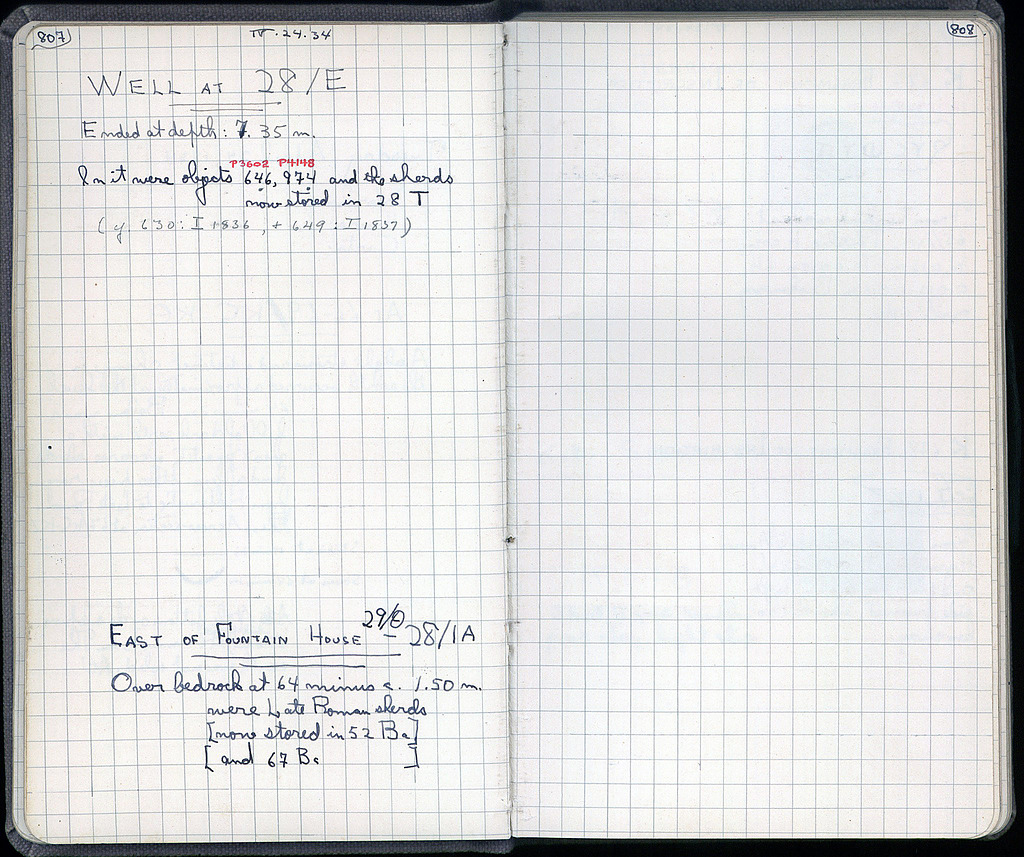 807
IV.24.34
WELL AT 28/E
Ended at depth: 7.35 m.
P3602 P4148
In it were objects 646, 974 and the sherds
now stored in 28 T
(cf. 630: I 1836, + 649: I 1837)
29/Θ
EAST OF FOUNTAIN HOUSE – 28/IA
Over bedrock at 64 minus c. 1.50 m.
were Late Roman sherds
[now stored in 52 Ba]
[and 67 Ba]
808